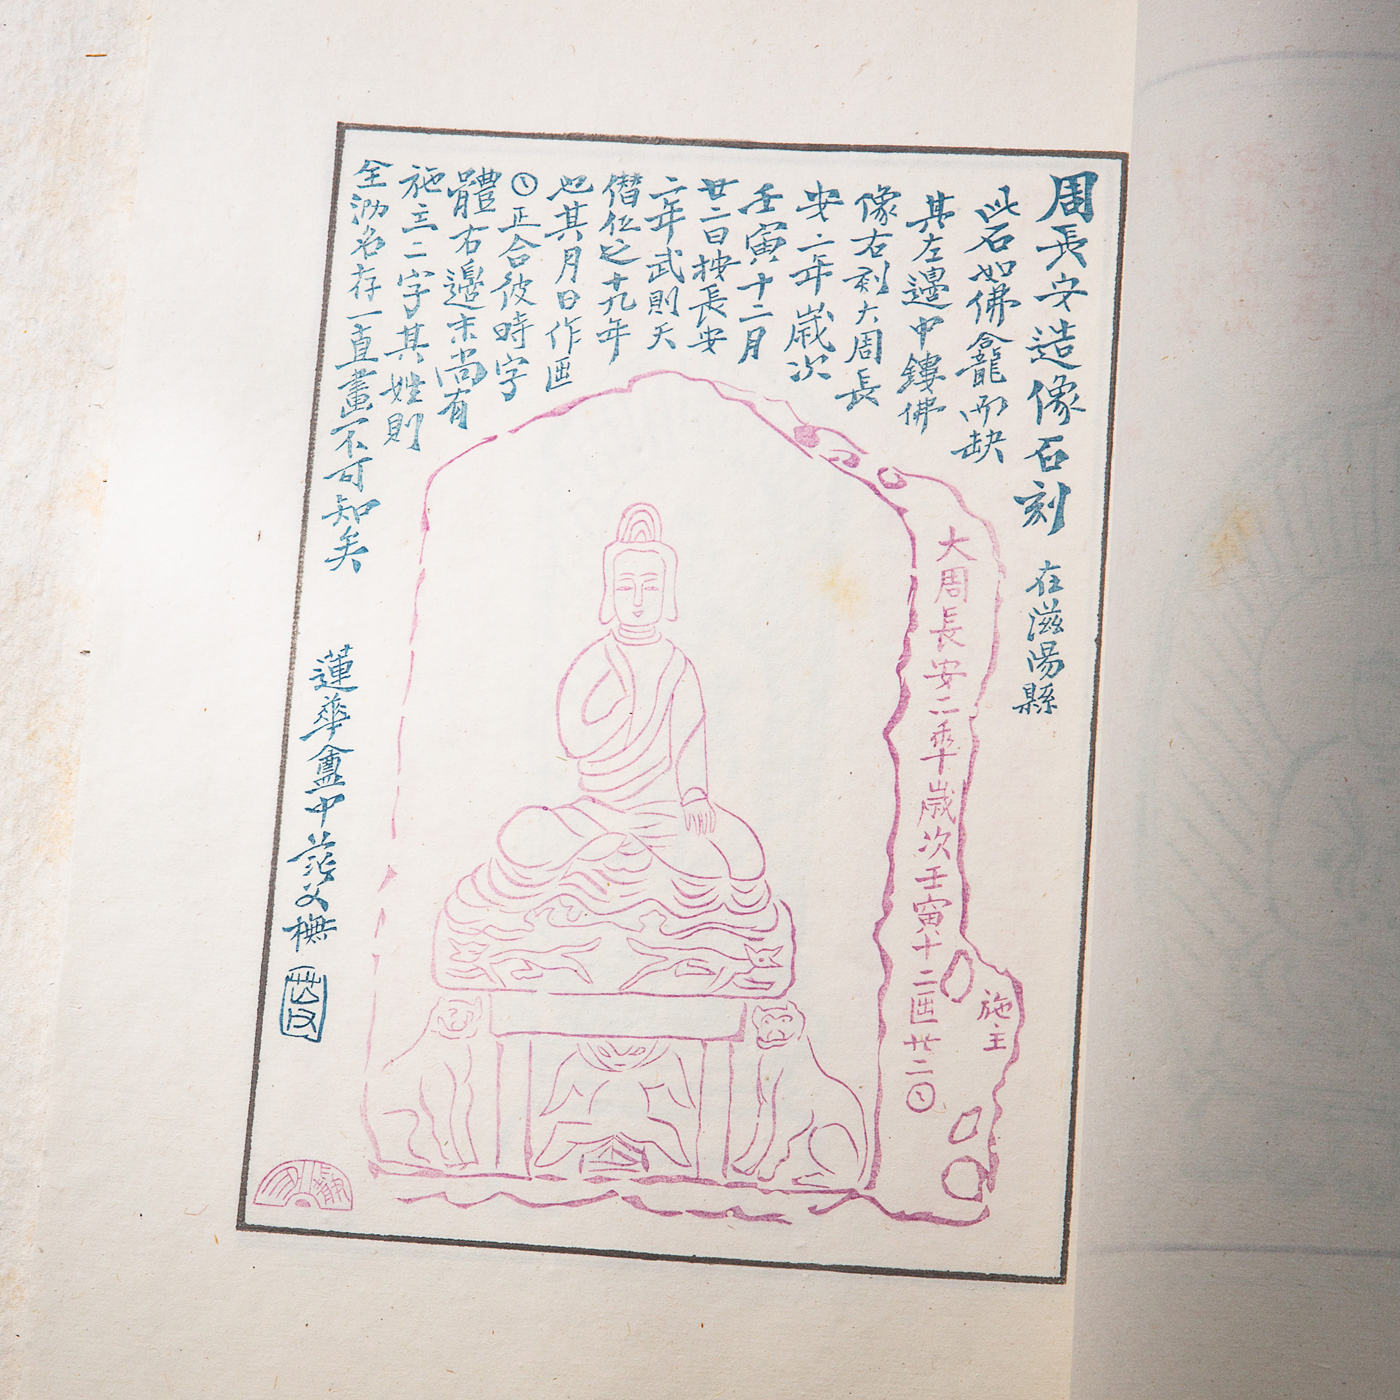 周長安造像石刻 在滋陽縣
此石如佛龕而缺
其左邊中鏤佛
像右刻大周長
安二年歲次
壬寅十二月
廿二日按長安
二年武則天
僭位之十九年
也其月日作𠥱
〇正合彼時字
體右邊末尚有
施主二字其姓則
全泐名存一直畫不可知矣
蓮華盦中茫父橅
茫父
大周長安二𠡦歲次壬寅十二𠥱廿二〇
施主